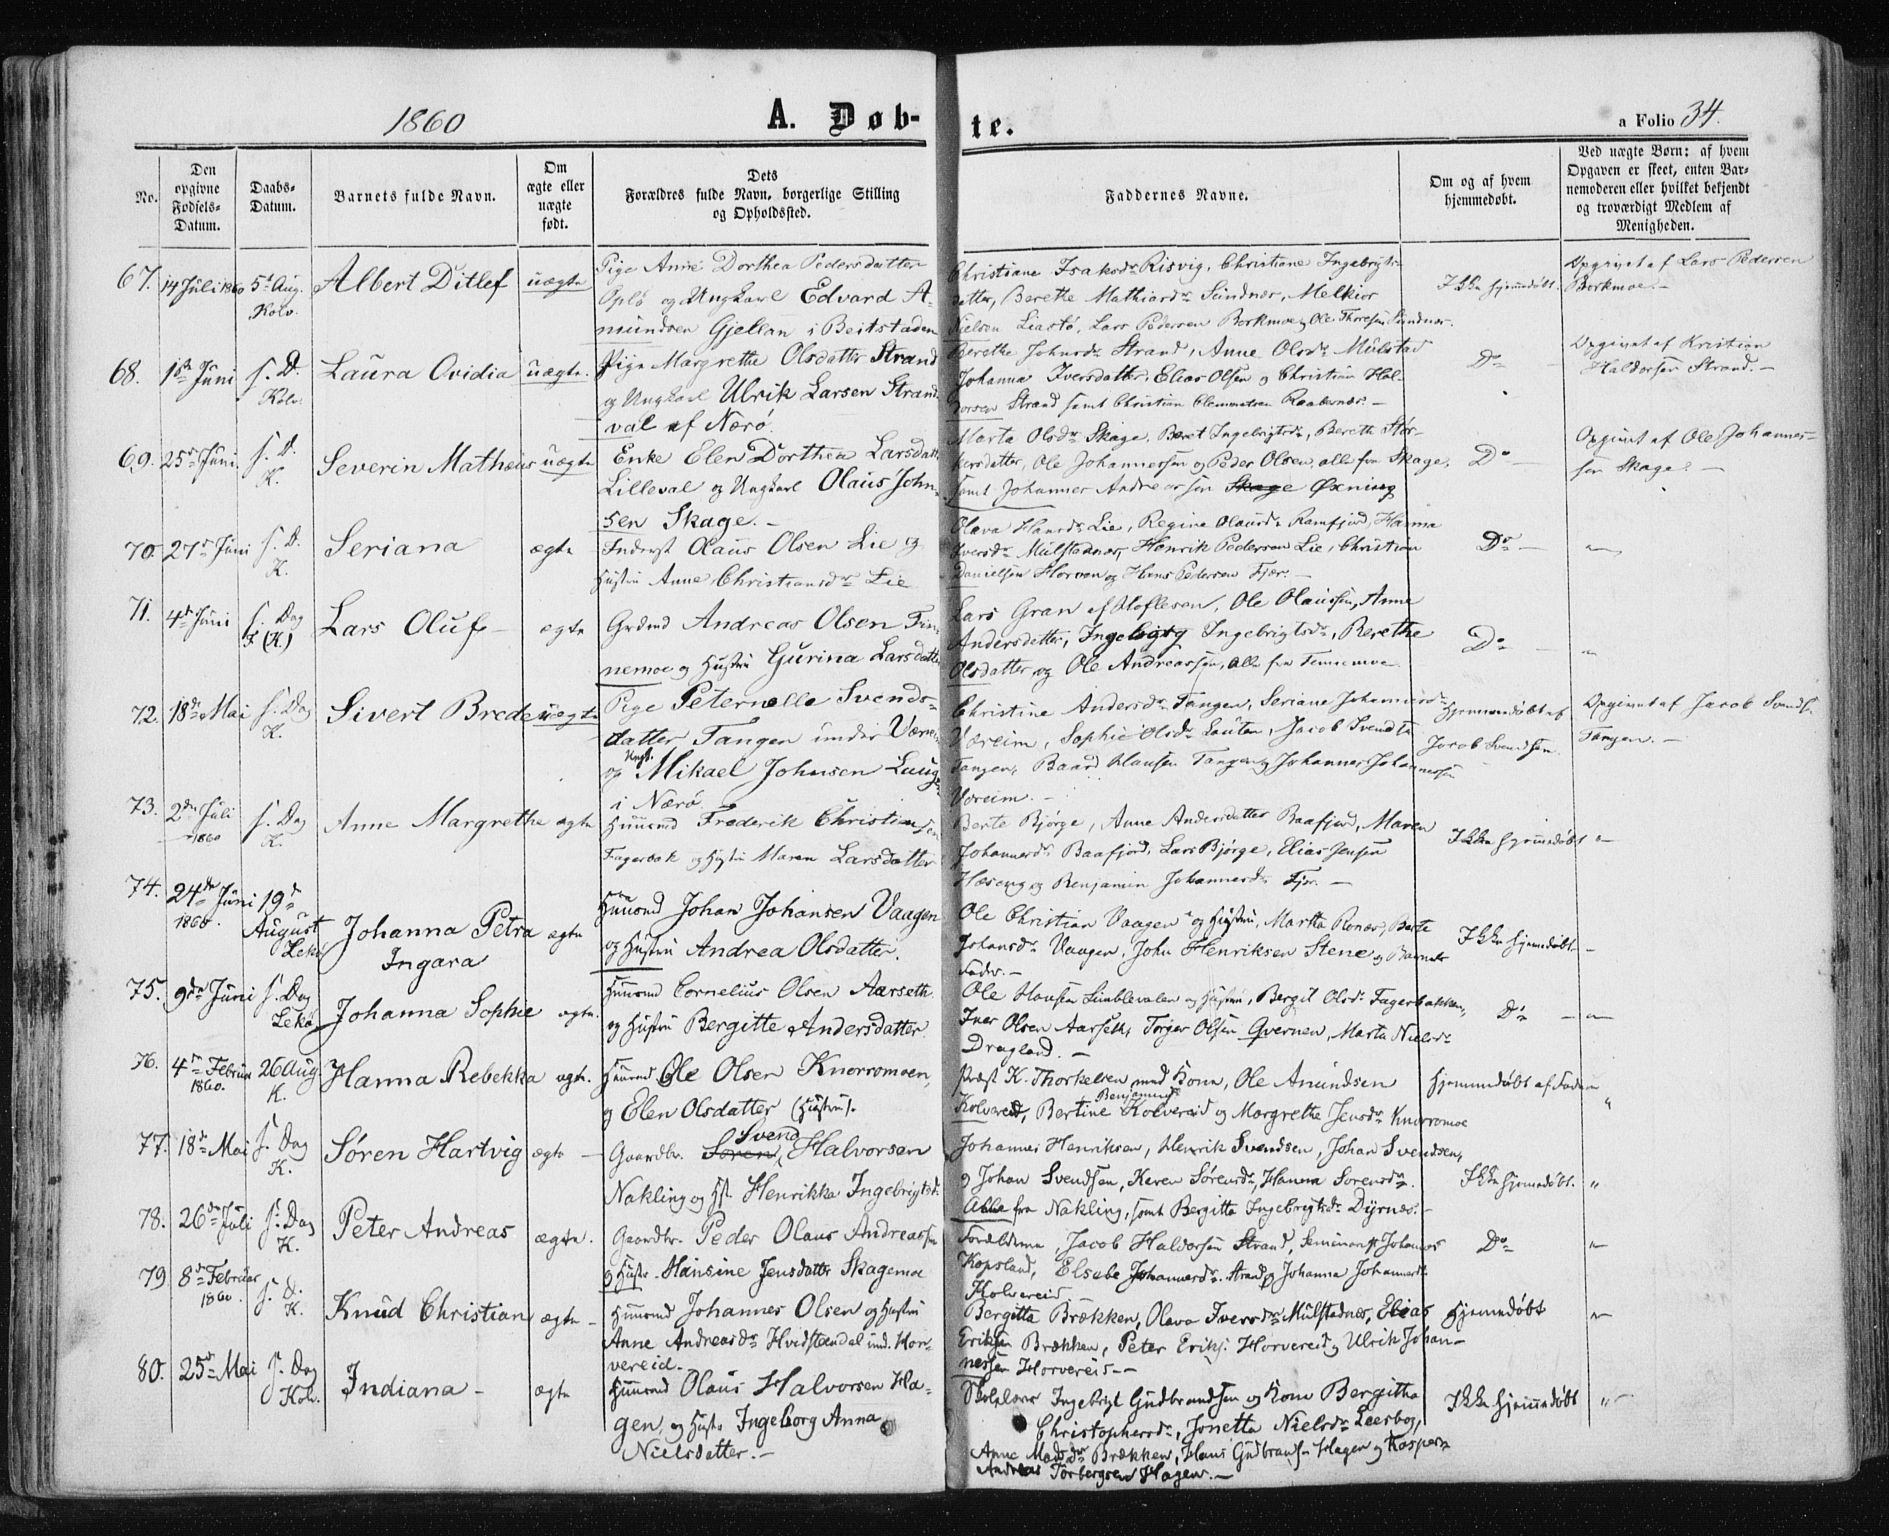 1860
A. Døb-
te.
a Folio 34.
No.
Den opgivne Fødsels-Datum.
Daabs-Datum.
Barnets fulde Navn.
Om ægte eller uægte født.
Dets Forældres fulde Navn, borgerlige Stilling og Opholdssted.
Faddernes Navne.
Om og af hvem hjemmedøbt.
Ved uægte Børn: af hvem Opgaven er skeet, enten Barnemoderen eller hvilket bekjendt og troværdigt Medlem af Menigheden.
67. 14 Juli 1860 5t Aug. Kolv. Albert Ditlef uægte
Pige Anne Dorthea Pedersdatter
Oplø og Ungkarl Edvard A-
mundsen Gjellan i Beitstaden
Christiane Isaksdr Risvig, Christiane Ingebrigts-
datter, Berethe Mathiasdr Melkior
Nielsen Liastø, Lars Pedersen Borkmo og Ole Thoresen
Ikke hjemmedøbt.
Opgivet af Lars Pedersen
Borkmoe.-
68. 1ste Juni s. D. Kolv. Laura Ovidia uægte
Pige Margrethe Olsdatter Strand
og Ungkarl Ulrik Larsen Strand
val af Nærø.
Berethe Johnsdr Strand, Anne Olsdr Mulstad
Johanna Iversdatter, Elias Olsen og Christian Hal-
dorsen Strand samt Christian Clemmetsen
Do
Opgivet af Kristian
Haldorsen Strand.-
69. 25de Juni s. D. K. Severin Mathæus uægte
Enke Elen Dorthea Larsdatter
Lilleval og Ungkarl Olaus John-
sen Skage.-
Marta Olsdr Skage, Beret Ingebrigtsdr, Berethe Stor-
kersdatter, Ole Johannessen og Peder Olsen, alle fra Skage,
samt Johannes Andreassen Skage Øxning
Do
Opgivet af Ole Johannes-
sen Skage.-
70. 27de Juni s. D. K. Seriana ægte
Inderst Olaus Olsen Lie og
Hustru Anne Christiansdr Lie
Olava Hansdr Lie, Regine Olausdr Ramfjord, Hanna
Iversdr Mulstadnæs, Henrik Pedersen Lie, Christian
Danielsen Horven og Hans Pedersen Fjær.-
Do
71. 4de Juni s. Dag F (K.) Lars Oluf- ægte
Grdmd Andreas Olsen Fin-
nemoe og Hustru Gurina Larsdatter
Lars Gran af Hoflesen, Ole Olaussen, Anne
Andersdatter, Ingeborg Ingebrigtsdr, Berethe
Olsdatter og Ole Andreassen, alle fra
Do
72. 18de Mai s. Dag K. Sivert Brede uægte
Pige Peternelle Svends-
datter Tangen under Værem
og Ungk. Mikael Johnsen Laug
i Nærø.
Christine Andersdr Tangen, Seriane Johannesdr
Væreim, Sophie Olsdr Jacob Svends
Tangen, Baard Hansen Tangen og Johannes Johannesen
Væreim.-
Hjemmedøbt af
Jacob Svendsen
Opgivet af Jacob Svends.
Tangen.-
73. 2den Juli 1860 s. Dag K. Anne Margrethe ægte
Huusmd Frederik Christiansen
Fagerbak og Hustru Maren Larsdatter
Berte Bjørge, Anne Andersdatter Baafjord, Maren
Johannesdr Baafjord, Lars Bjørge, Elias Jensen
og Benjamin Johannesdr Fjær.-
Ikke hjemmedøbt
74. 24de Juni 1860. 19de August Lekø Johanna Petra
Ingara ægte
Huusmd Johan Johansen Vaagen
og Hustru Andrea Olsdatter.
Ole Christian Vaagen og Hustru, Martha Berte
Johansdr Vaagen, John Henriksen Stene og Barnets
Fader.-
Ikke hjemmedøbt-
75. 9de Juni s. Dag Lekø Johanna Sophie ægte.
Huusmd Cornelius Olsen Aarseth
og Hustru Bergitte Andersdatter.
Ole Hansen og Hustru, Bergit Olsdr Fagerbakken,
Iver Olsen Aarseth, Torger Olsen Qvernen, Marta Nielsdr
Dragland.-
Do
76. 4de Februar 1860. 26 Aug K. Hanna Rebekka ægte.
Huusmd Ole Olsen Knorromoen,
og Elen Olsdatter (Hustru).
Præst K. Thorkelsen med Kone, Ole Amundsen
Kolvereid, Bertine Benjamins Kolvereid og Margrethe Jensdr Knorromoe
Hjemmedøbt af Faderen
77. 18de Mai s. Dag K. Søren Hartvig ægte
Gaardbr. Søren Svend Halvorsen
Nakling og Hst Henrikka Ingebrigtsd.
Johannes Henriksen, Henrik Svendsen, Johan Svendsen,
og Johan Svendsen, Karen Sørensdr, Hanna Sørensdr.
Alle fra Nakling, samt Bergitta Ingebrigtsdr Dyrnæs.-
Ikke hjemmedøbt.
78. 26de Juli s. Dag K. Peter Andreas ægte.
Gaardbr. Peder Olaus Andreassen
og Hustr. Hansine Jensdatter Skagemoe
Forældrene, Jacob Haldorsen Strand, Seminarist Johannes
Kopsland, Elsebe Johannesdr. Strand og Johanna Johannesd.
Kolvereid
Do
79 8de Februar 1860. s. D. K. Knud Christian ægte-
Huusmd Johannes Olsen og Hustru
Anne Andreasdr Hvidsteendal und. Hor-
vereid.-
Bergitta Brækken, Olava Iversdr Mulstadnæs, Elias
Eriksen Brækken, Peter Eriks. Horvereid og Ulrik Johan-
nessen Horvereid.-
Hjemmedøbt
80. 25de Mai s. Dag Kolv. Indiana- ægte
Huusmd Olaus Halvorsen Ha-
gen, og Hustr Ingeborg Anna
Nielsdatter.-
Skolelærer Ingebrigt Gudbrandsen og Kone Bergitha
Christophersdr, Jonetta Nielsdr Leerbog,
Anne Madsdr Brækken, Hans Gudbrands. Hagen og Kasper
Andreas Torbergsen Hagen.-
Ikke hjemmedøbt